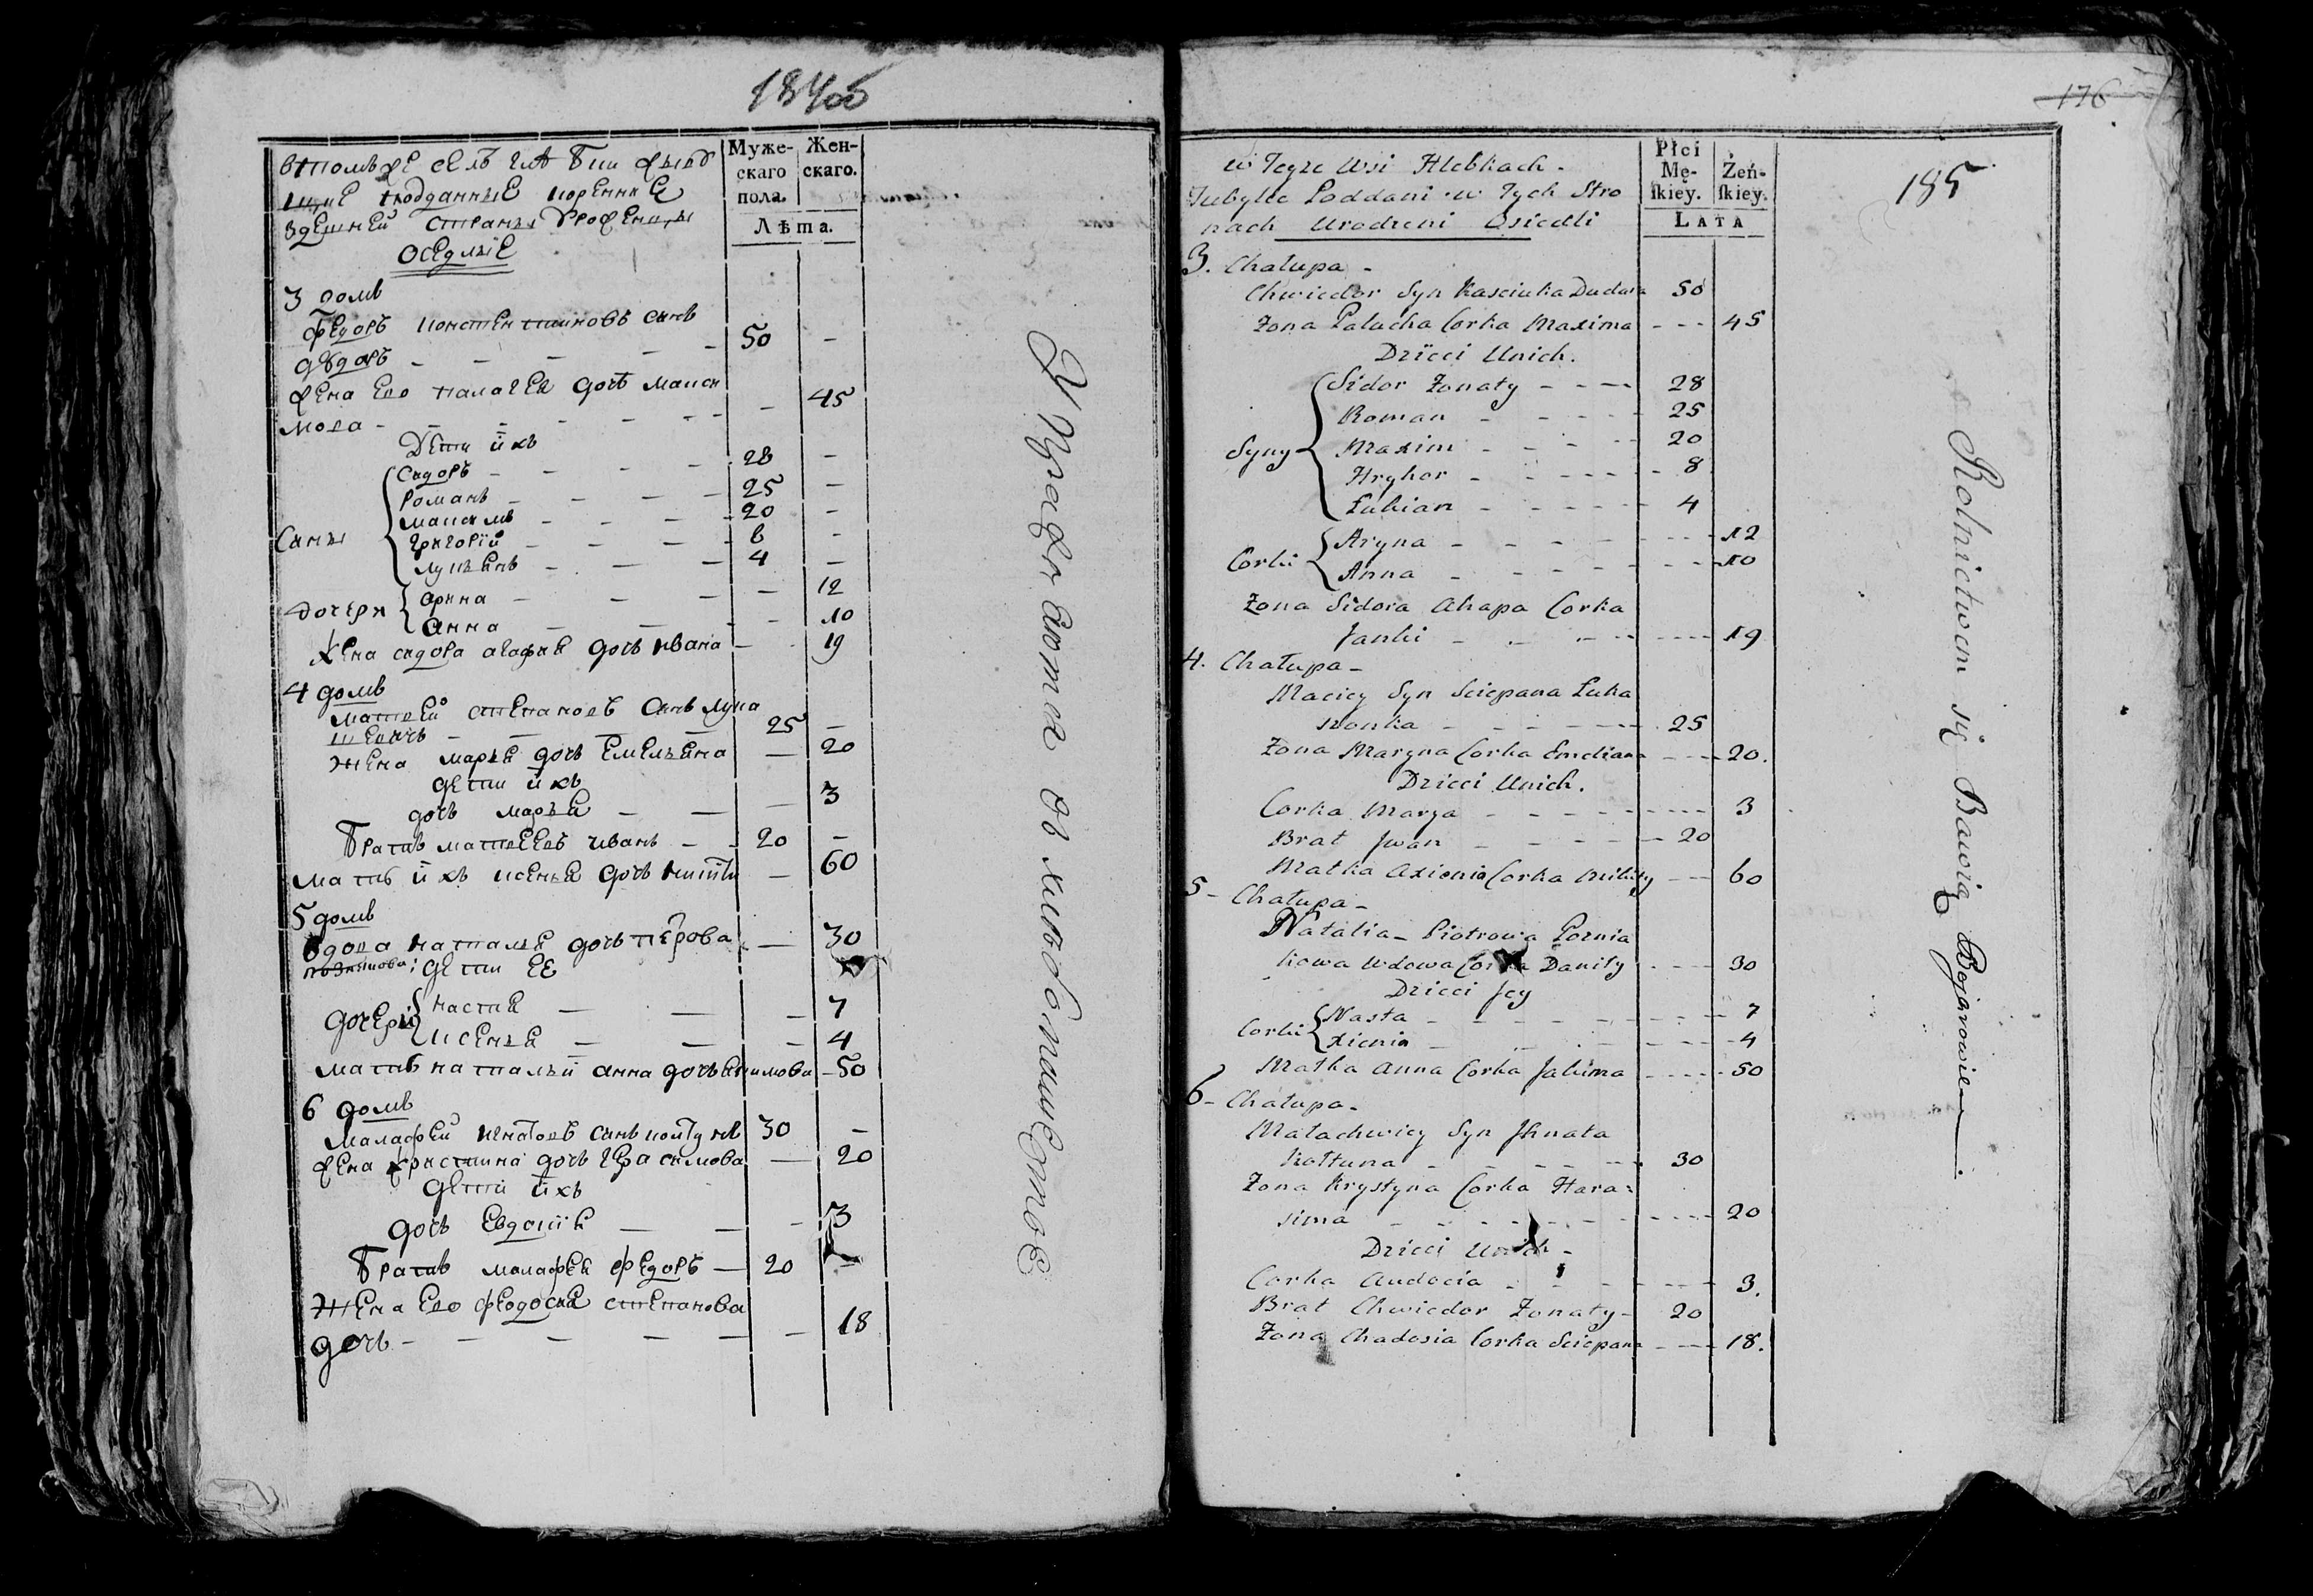 184об
Муже-
скаго
пола.
Жен-
скаго.
Лѣта.
втомъже селѣ глѣбки живу
щие подданные коренные
здешней страны уроженцы
оседлые
3 домъ
Федоръ константиновъ сынъ
дударъ - - - - - 50 -
жена его палагея дочь макси
мова - - - - - - 45
Дети ихъ
Сыны
Сидоръ - - - - 28 -
Романъ - - - - 25 -
максимъ - - - - 20 -
григорій - - - - 8 -
лукьянъ - - - 4 -
дочери
арина - - - - 12
анна - - - - 10
жена сидора агафия дочь ивана - 19
4 домъ
матвей степановъ сынъ лука
шенокъ - - - 25 -
жена марья дочь емельяна - 20
дети ихъ
дочь марья - - - 3
братъ матвеевъ иванъ - - 20 -
мать ихъ ксенья дочь никиты - 60
5 домъ
вдова наталья дочь петрова - 30
: дети ее
дочери
настия - - - 7
ксенья - - - 4
мать натальи анна дочь якимова - 50
6 домъ
малафей игнатовъ сынъ колтунъ 30 -
жена христина дочь герасимова - 20
дети ихъ
дочь евдокия - - - 3
братъ малафея федоръ - 20 -
жена его феодосия степанова
дочь - - - - - - 18
Упражняются въ хлебопашестве
176
185
w Teyże Wsi Hlebkach -
Poddani w Tych Stro
nach Urodzeni Osiedli
Płci
Mę-
ſkiey.
Żeń-
ſkiey.
LATA
3. Chałupa -
Chwiedor Syn Kasciuka Dudara 50
Zona Pałacha Corka Maxima - - - 45
Dzieci Unich.
Syny
Sidor Zonaty - - - 28
Roman - - - - 25
Maxim - - - - 20
Hryhor - - - - - 8
Łukian - - - - - 4
Corki
Aryna - - - - - - - 12
Anna - - - - - - - 10
Zona Sidora Ahapa Corka
Janki - - - - - - 19
4. Chałupa -
Maciey Syn Sciepana Łuka
szonka - - - - - 25
Zona Maryna Corka Emeliana - - - 20.
Dzieci Unich.
Corka Marya - - - - - - - 3
Brat Jwan - - - - - 20
Matka Axienia Corka Mikity - - 60
5 - Chałupa -
Natalia - Piotrowa Poznia
kowa Wdowa Corka Daniły - - - 30
Dzieci Jey
Corki
Nasta - - - - - - - - 7
Xienia - - - - - - - 4
Matka Anna Corka Jakima - - - - 50
6 - Chałupa -
Małachwiey Syn Jhnata
Kołtuna - - - - - 30
Zona Krystyna Corka Hara-
sima - - - - - - - - 20
Dzieci Unich -
Corka Audocia - - - - - - 3.
Brat Chwiedor Zonaty - 20
Zona Chadosia Corka Sciepana - - - 18.
Rolnictwem się Bawią Bojarowie